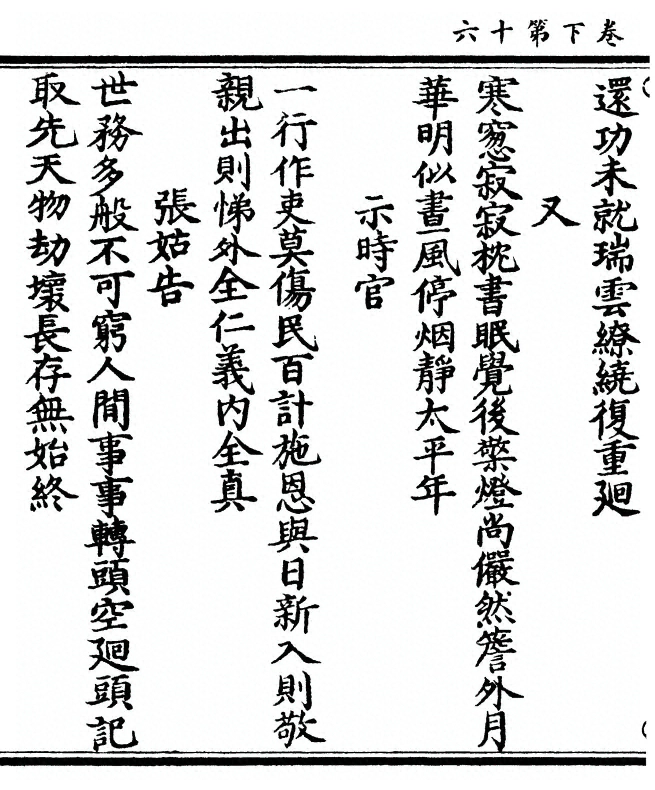 卷下第十六
還功未就瑞雲繚繞復重廻
又
寒窓寂寂枕書眠覺後檠燈尚儼然簷外月
華明似晝風停烟靜太平年
示時官
一行作吏莫傷民百計施恩與日新入則敬
親出則悌外全仁義内全真
張姑告
世務多般不可窮人間事事轉頭空廻頭記
取先天物劫壞長存無始終